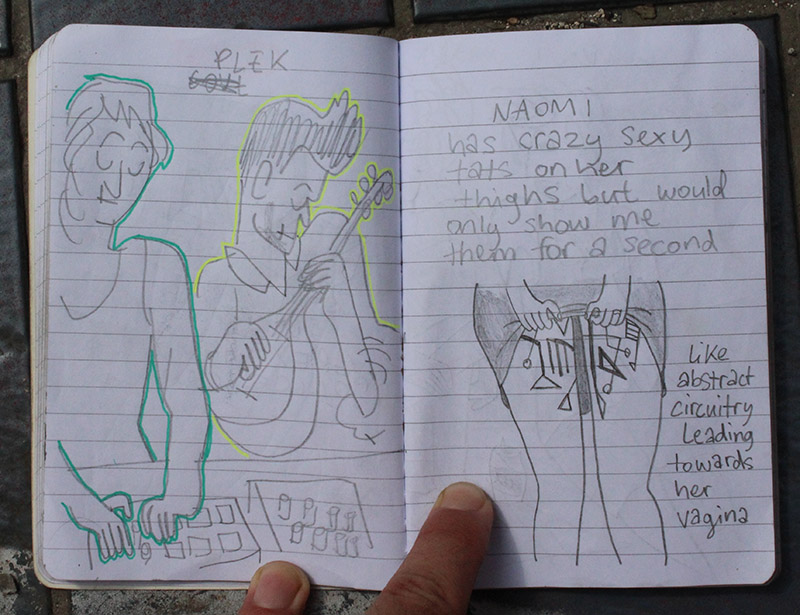 PLEK
NAOMI
has crazy sexy
tats on her
thighs but would
only show me
them for a second
like
abstract
circuitry
Leading
towards
her
vagina